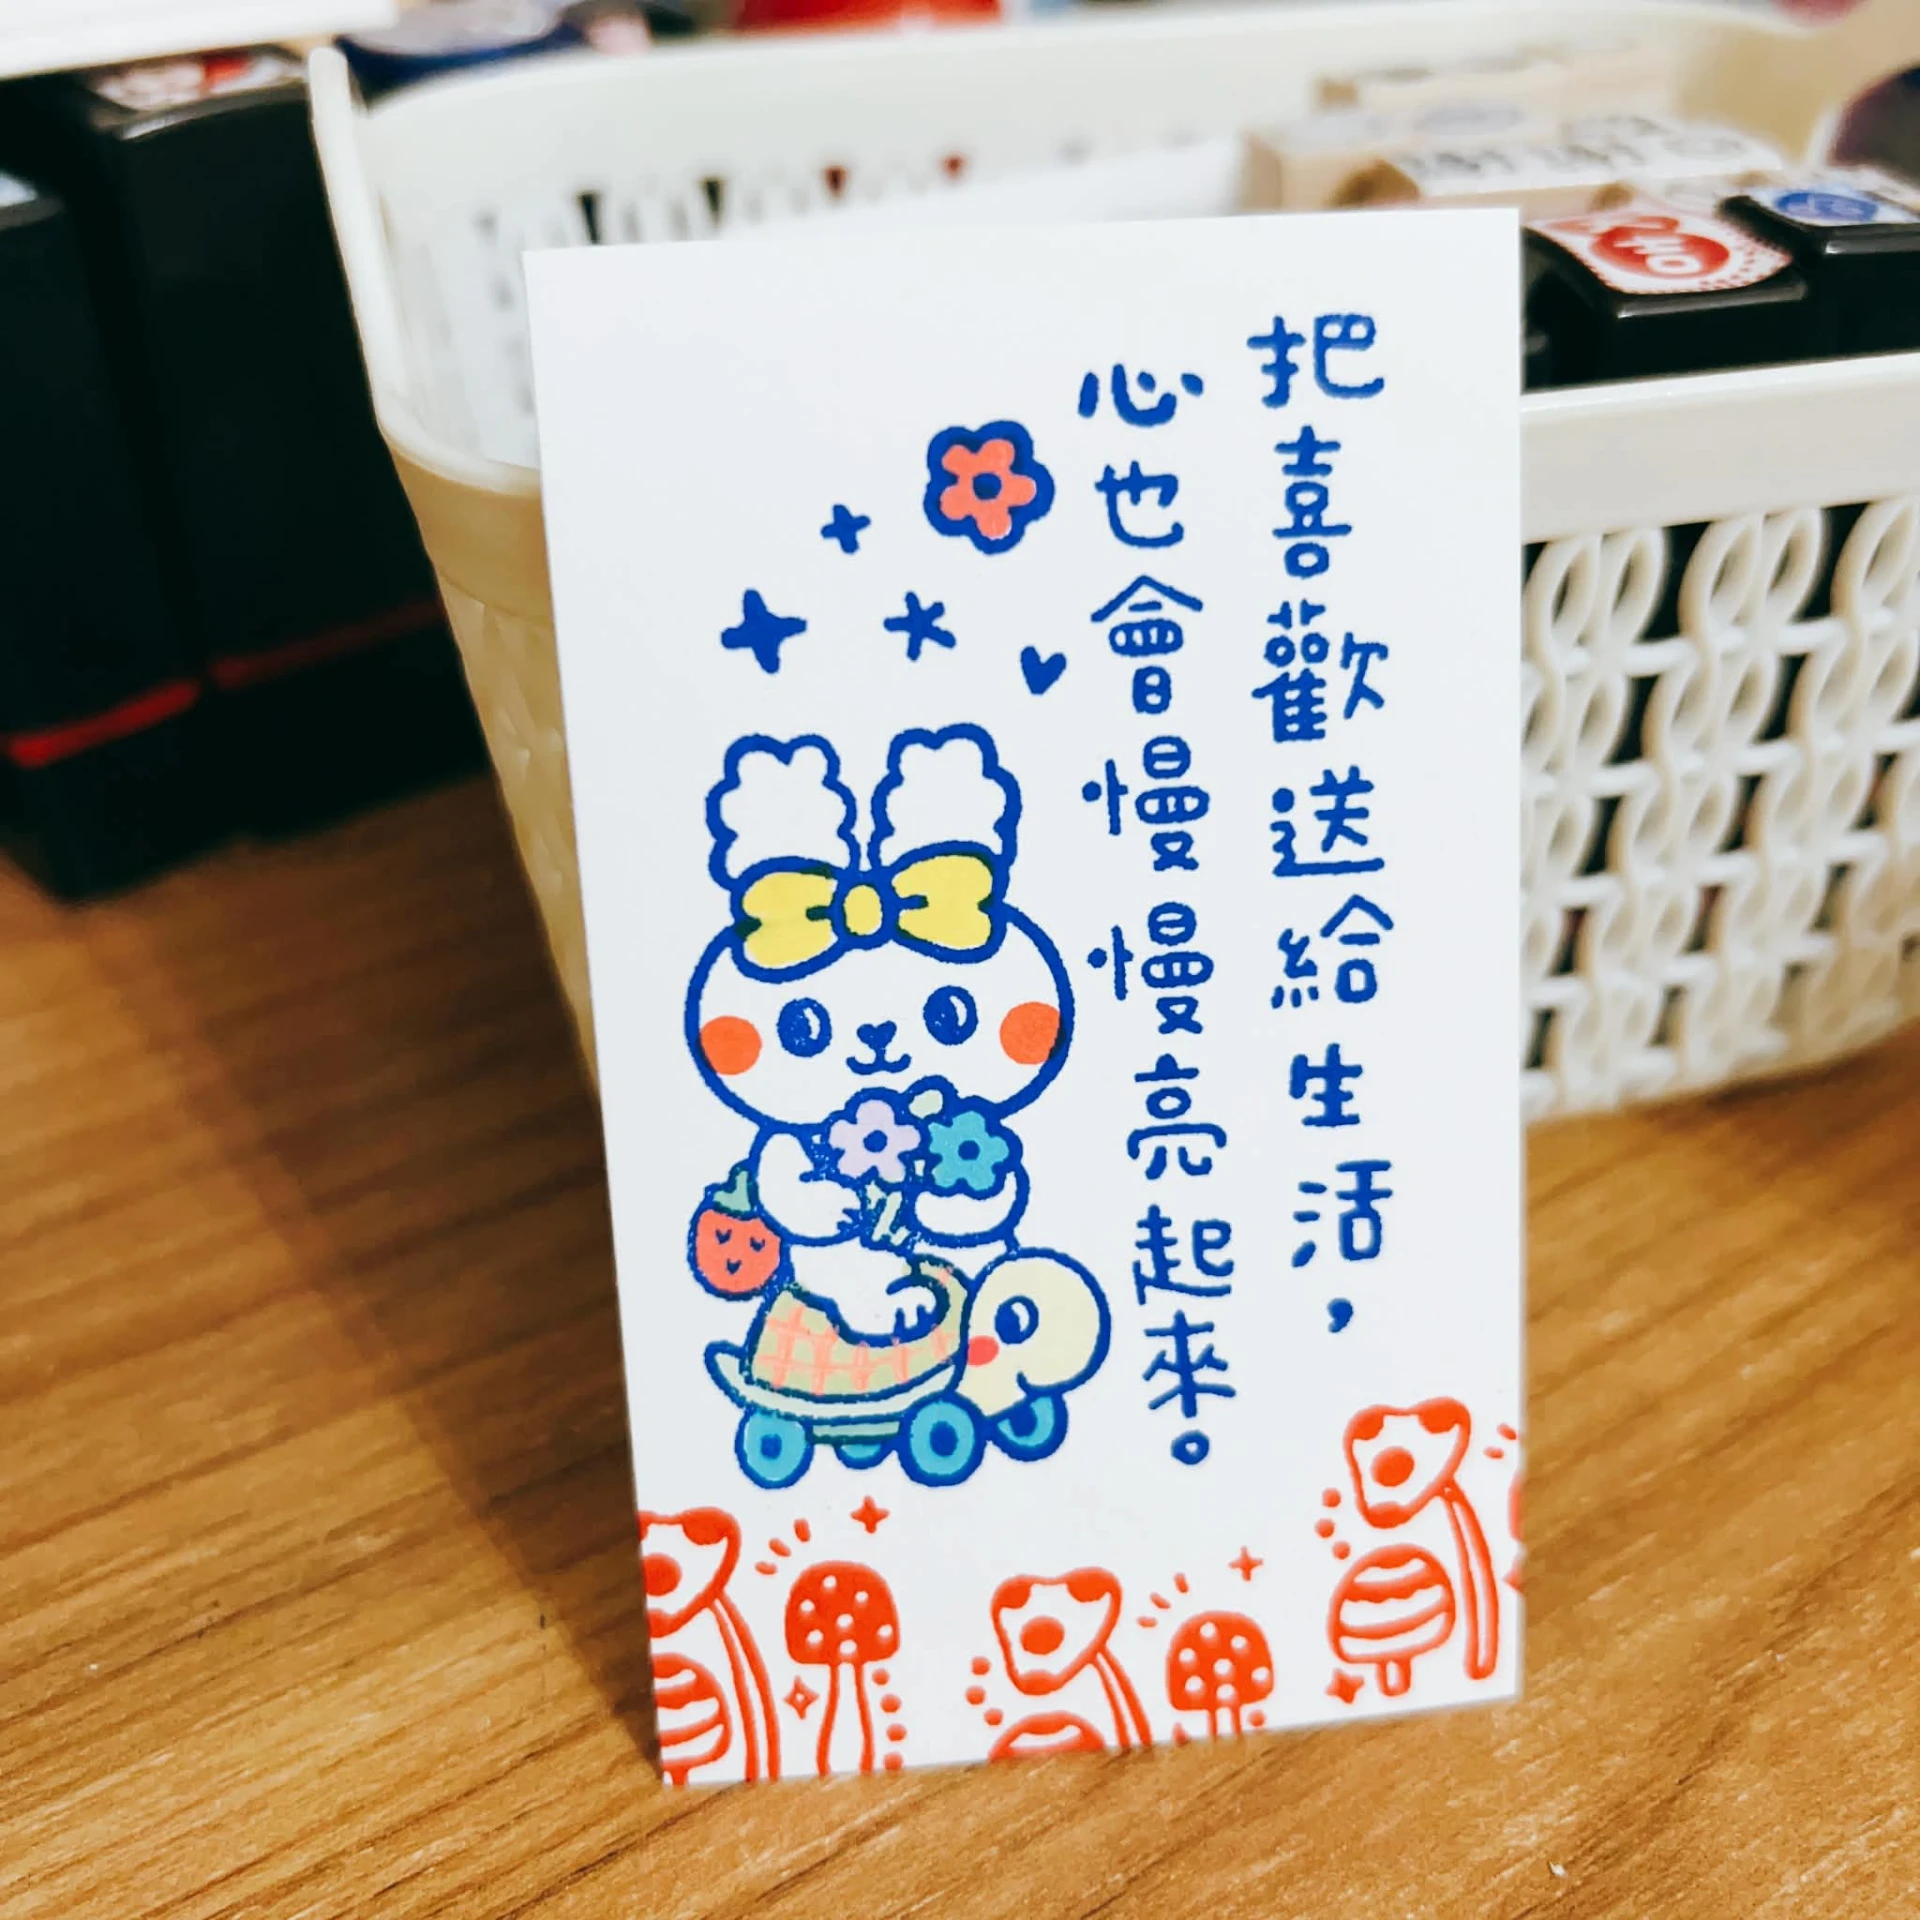 把喜歡送給生活，
心也會慢慢亮起來。